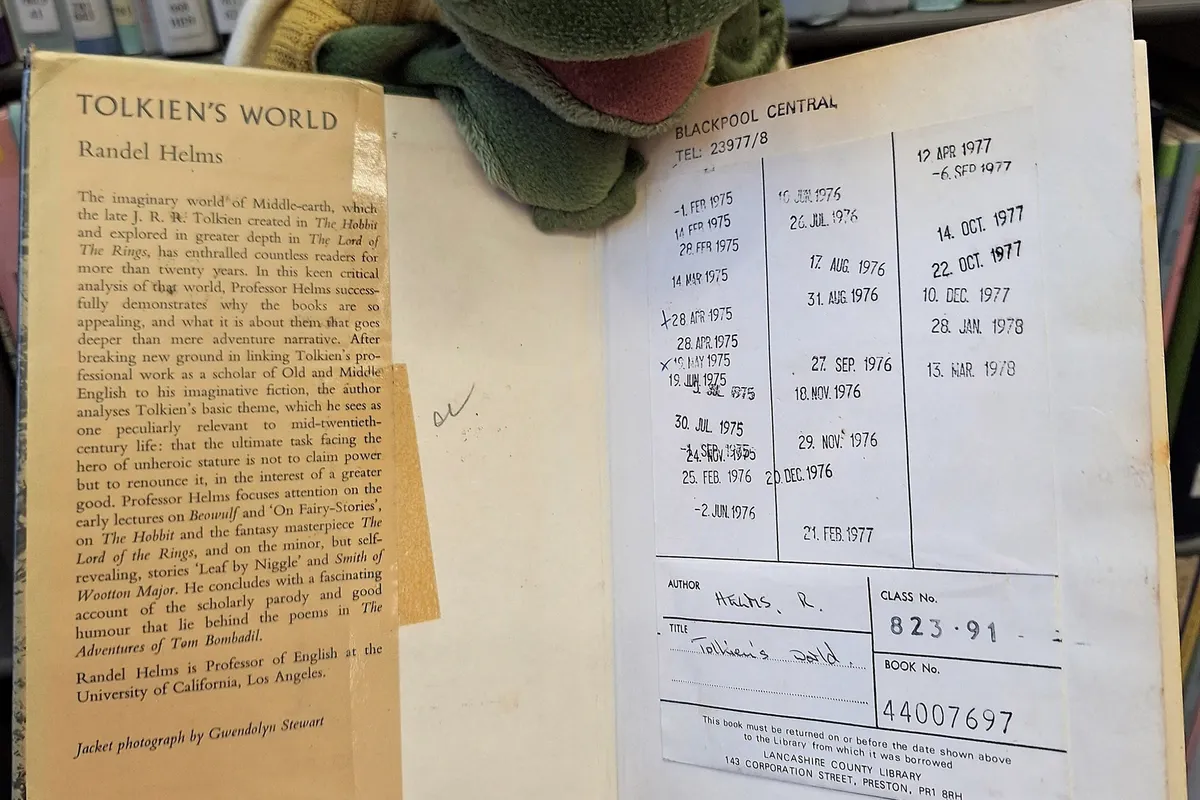 TOLKIEN'S WORLD
Randel Helms
The imaginary world of Middle-earth, which
the late J. R. R. Tolkien created in The Hobbit
and explored in greater depth in The Lord of
The Rings, has enthralled countless readers for
more than twenty years. In this keen critical
analysis of that world, Professor Helms success-
fully demonstrates why the books are so
appealing, and what it is about them that goes
deeper than mere adventure narrative. After
breaking new ground in linking Tolkien's pro-
fessional work as a scholar of Old and Middle
English to his imaginative fiction, the author
analyses Tolkien's basic theme, which he sees as
one peculiarly relevant to mid-twentieth-
century life: that the ultimate task facing the
hero of unheroic stature is not to claim power
but to renounce it, in the interest of a greater
good. Professor Helms focuses attention on the
early lectures on Beowulf and 'On Fairy-Stories',
on The Hobbit and the fantasy masterpiece The
Lord of the Rings, and on the minor, but self-
revealing, stories 'Leaf by Niggle' and Smith of
Wootton Major. He concludes with a fascinating
account of the scholarly parody and good
humour that lie behind the poems in The
Adventures of Tom Bombadil.
Randel Helms is Professor of English at the
University of California, Los Angeles.
Jacket photograph by Gwendolyn Stewart
BLACKPOOL CENTRAL
TEL: 23977/8
-1. FEB 1975
14 FEB 1975
28. FEB 1975
14 MAR 1975
28 APR 1975
28. APR. 1975
MAY 1975
19. JUN 1975
JUL 1975
30. JUL 1975
24. NOV. 1975
25. FEB. 1976
-2. JUN. 1976
JUN. 1976
26. JUL. 1976
17. AUG. 1976
31. AUG. 1976
27. SEP. 1976
18. NOV. 1976
29. NOV. 1976
20. DEC. 1976
21. FEB. 1977
12 APR 1977
-6. SEP 1977
14. OCT. 1977
22. OCT. 1977
10. DEC. 1977
28. JAN. 1978
13. MAR. 1978
AUTHOR
HELMS, R.
TITLE
Tolkien's World.
CLASS No.
823.91
BOOK No.
44007697
This book must be returned on or before the date shown above
to the Library from which it was borrowed
LANCASHIRE COUNTY LIBRARY
143 CORPORATION STREET, PRESTON, PR1 8RH